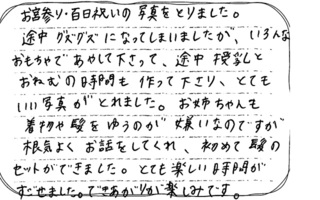 お宮参り・百日祝いの写真をとりました。
途中グズグズになってしまいましたが、いろんな
おもちゃであやして下さって、途中授乳と
おねむの時間も作って下さり、とても
いい写真がとれました。お姉ちゃんも
着物や髪をゆうのが嫌いなのですが
根気よくお話をしてくれ、初めて髪の
セットができました。とても楽しい時間が
すごせました。できあがりが楽しみです。